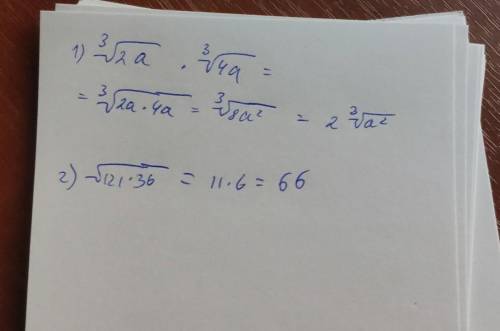 1) ∛2a · ∛4a =
= ∛2a·4a = ∛8a² = 2 ∛a²
2) √121·36 = 11·6 = 66